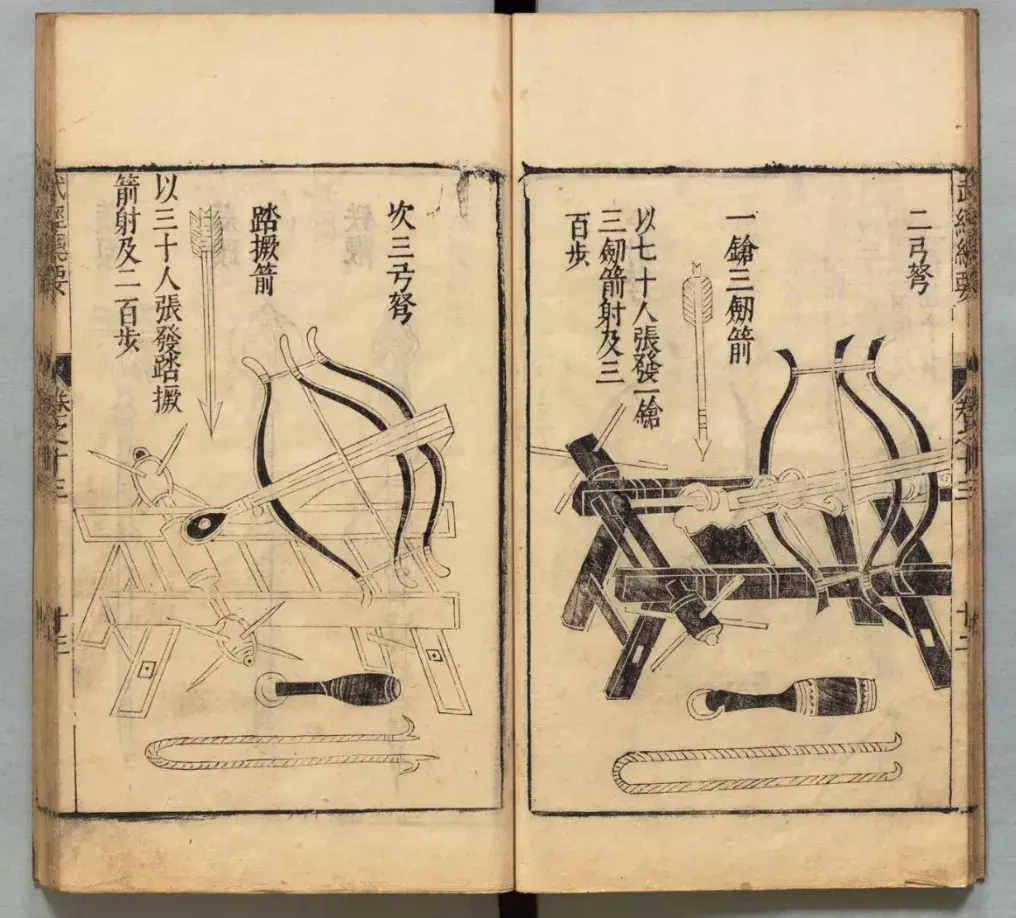 武經總要
卷之十三
二弓弩
一鎗三劒箭
以七十人張發一鎗
三劒箭射及三
百步
次三弓弩
踏撅箭
以三十人張發踏撅
箭射及二百步
武經總要
卷之十三